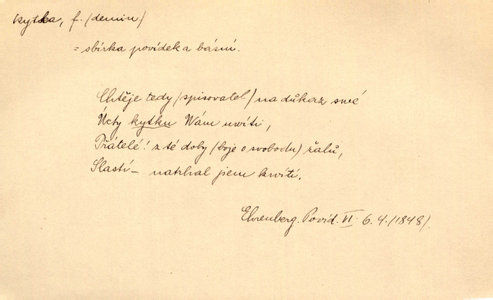 kytka, f. (demin)
= sbírka povídek a básní.
Chtěje tedy (spisovatel) na důkaz své
Úcty kytku Wám uwíti,
Přátelé! z té doby (boje o svobodu) žalů,
Slastí – natrhal jsem kwítí.
Ehrenberg. Povíd. VI. 6. 4. (1848).